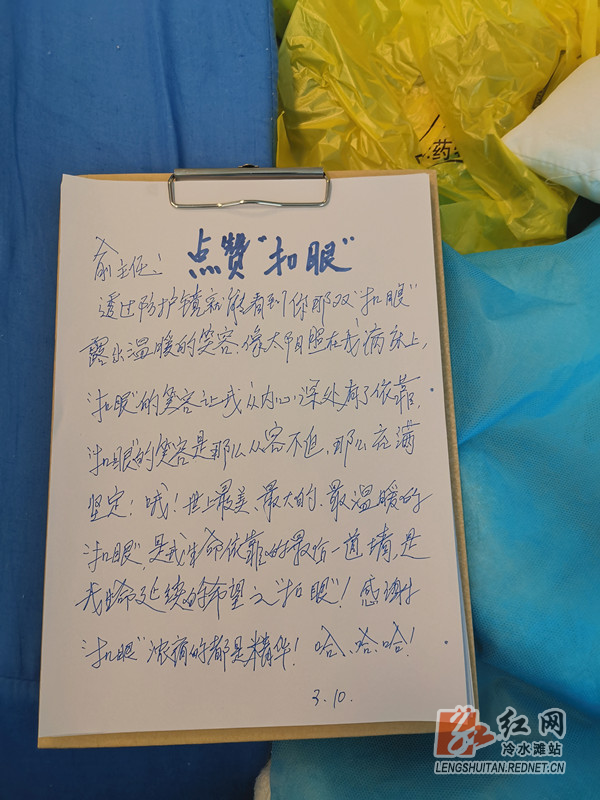 点赞"扣眼"
俞主任：
透过防护镜就能看到你那双"扣眼"
露出温暖的笑容.像太阳照在我病床上,
"扣眼"的笑容让我从内心深处有了依靠.
"扣眼"的笑容是那么从容不迫,那么充满
坚定!哦!世上最美、最大的.最温暖的
"扣眼",是我生命依靠的最后一道墙,是
我生命延续的希望之"扣眼"!感谢
"扣眼"浓缩的都是精华!哈、哈、哈!
3.10.
药
红网
冷水滩站
LENGSHUITAN.REDNET.CN